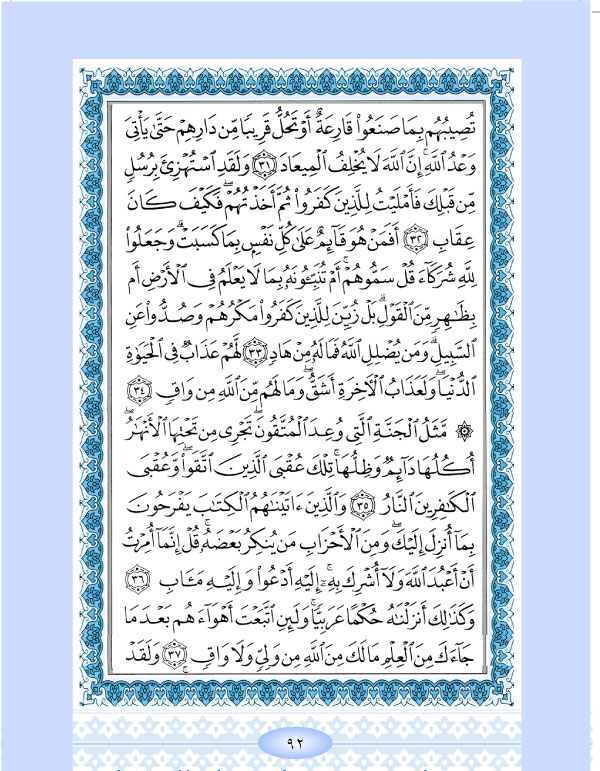 تُصِيبُهُم بِمَا صَنَعُوا۟ قَارِعَةٌ أَوْ تَحُلُّ قَرِيبًا مِّن دَارِهِمْ حَتَّىٰ يَأْتِىَ
وَعْدُ ٱللَّهِ ۚ إِنَّ ٱللَّهَ لَا يُخْلِفُ ٱلْمِيعَادَ ٣١ وَلَقَدِ ٱسْتُهْزِئَ بِرُسُلٍ
مِّن قَبْلِكَ فَأَمْلَيْتُ لِلَّذِينَ كَفَرُوا۟ ثُمَّ أَخَذْتُهُمْ ۖ فَكَيْفَ كَانَ
عِقَابِ ٣٢ أَفَمَنْ هُوَ قَآئِمٌ عَلَىٰ كُلِّ نَفْسٍۭ بِمَا كَسَبَتْ ۗ وَجَعَلُوا۟
لِلَّهِ شُرَكَآءَ قُلْ سَمُّوهُمْ ۚ أَمْ تُنَبِّـُٔونَهُۥ بِمَا لَا يَعْلَمُ فِى ٱلْأَرْضِ أَم
بِظَـٰهِرٍ مِّنَ ٱلْقَوْلِ ۗ بَلْ زُيِّنَ لِلَّذِينَ كَفَرُوا۟ مَكْرُهُمْ وَصُدُّوا۟ عَنِ
ٱلسَّبِيلِ ۗ وَمَن يُضْلِلِ ٱللَّهُ فَمَا لَهُۥ مِنْ هَادٍ ٣٣ لَّهُمْ عَذَابٌ فِى ٱلْحَيَوٰةِ
ٱلدُّنْيَا ۖ وَلَعَذَابُ ٱلْـَٔاخِرَةِ أَشَقُّ ۖ وَمَا لَهُم مِّنَ ٱللَّهِ مِن وَاقٍ ٣٤
۞ مَّثَلُ ٱلْجَنَّةِ ٱلَّتِى وُعِدَ ٱلْمُتَّقُونَ ۖ تَجْرِى مِن تَحْتِهَا ٱلْأَنْهَـٰرُ ۖ
أُكُلُهَا دَآئِمٌ وَظِلُّهَا ۚ تِلْكَ عُقْبَى ٱلَّذِينَ ٱتَّقَوا۟ ۖ وَّعُقْبَى
ٱلْكَـٰفِرِينَ ٱلنَّارُ ٣٥ وَٱلَّذِينَ ءَاتَيْنَـٰهُمُ ٱلْكِتَـٰبَ يَفْرَحُونَ
بِمَآ أُنزِلَ إِلَيْكَ ۖ وَمِنَ ٱلْأَحْزَابِ مَن يُنكِرُ بَعْضَهُۥ ۚ قُلْ إِنَّمَآ أُمِرْتُ
أَنْ أَعْبُدَ ٱللَّهَ وَلَآ أُشْرِكَ بِهِۦٓ ۚ إِلَيْهِ أَدْعُوا۟ وَإِلَيْهِ مَـَٔابِ ٣٦
وَكَذَٰلِكَ أَنزَلْنَـٰهُ حُكْمًا عَرَبِيًّا ۚ وَلَئِنِ ٱتَّبَعْتَ أَهْوَآءَهُم بَعْدَ مَا
جَآءَكَ مِنَ ٱلْعِلْمِ مَا لَكَ مِنَ ٱللَّهِ مِن وَلِىٍّ وَلَا وَاقٍ ٣٧ وَلَقَدْ
٩٢